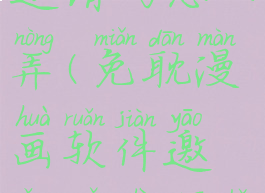 nòng miǎn dān màn
弄(免耽漫
huà ruǎn jiàn yāo
画软件邀